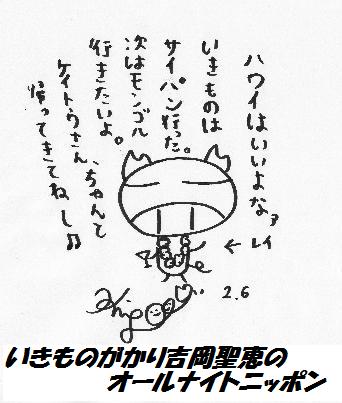 ハワイはいいよなァ
いきものは
サイパン行った。
次はモンゴル
行きたいよ。
ケイトウさん、ちゃんと
帰ってきてねし♫
← レイ
2.6
いきものがかり吉岡聖恵の
オールナイトニッポン